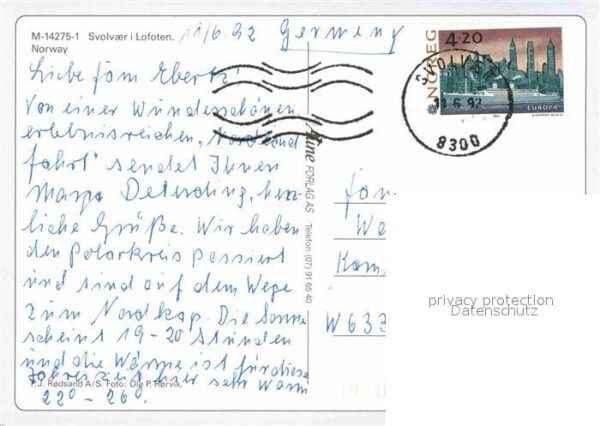 M-14275-1 Svolvær i Lofoten. 11/6.92 Germany
Norway
Liebe Fam Ebertz!
Von einer Wunderschönen
erlebnisreichen, "Nordland
fahrt" sendet Ihnen
Marga Deterding, herz-
liche Grüße. Wir haben
den Polarkreis passiert
und sind auf dem Wege
zum Nordkap. Die Sonne
scheint 19-20 Stunden
und die Wärme ist für diese
Jahreszeit hier sehr warm
22° - 26°.
P.J. Rødsand A/S. Foto: Ole P. Rørvik.
FORLAG AS Telefon (07) 91 65 40
NOREG
4.20
EUROPA
11.6.92
8300
Fam.
We
Kam
W 633
privacy protection
Datenschutz